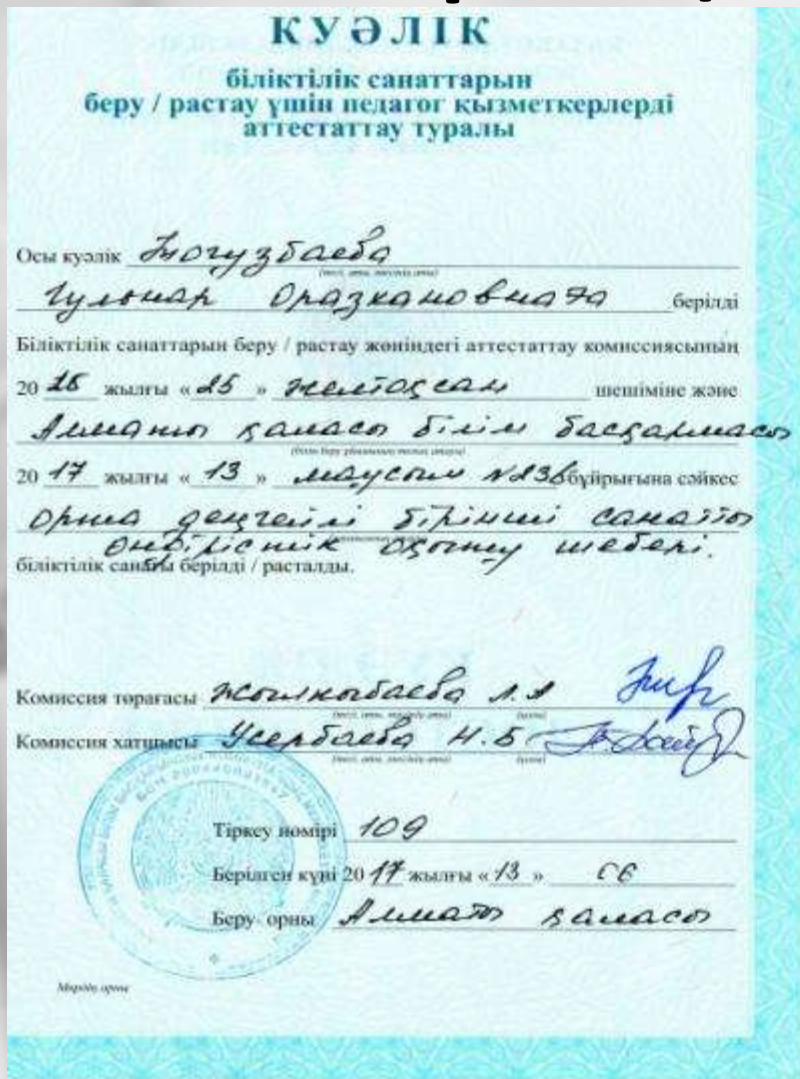 КУӘЛІК
біліктілік санаттарын
беру / растау үшін педагог қызметкерлерді
аттестаттау туралы
Осы куәлік Ногузбаева
(тегі, аты, әкесінің аты)
Гулонар Оразкановнаға берілді
Біліктілік санаттарын беру / растау жөніндегі аттестаттау комиссиясының
20 16 жылғы « 25 » желтоқсан шешіміне және
Алматы қаласы білім басқармасы
20 17 жылғы « 13 » маусым № бұйрығына сәйкес
Орта деңгейлі бірінші санатты
өндірістік оқыту шебері.
біліктілік санаты берілді / расталды.
Комиссия төрағасы Жылкыбаева
(тегі, аты, әкесінің аты) (қолы)
Комиссия хатшысы Усербаева Н.Б
(тегі, аты, әкесінің аты) (қолы)
Тіркеу нөмірі 109
Берілген күні 20 17 жылғы « 13 » 06
Беру орны Алматы қаласы
Мөрдің орны